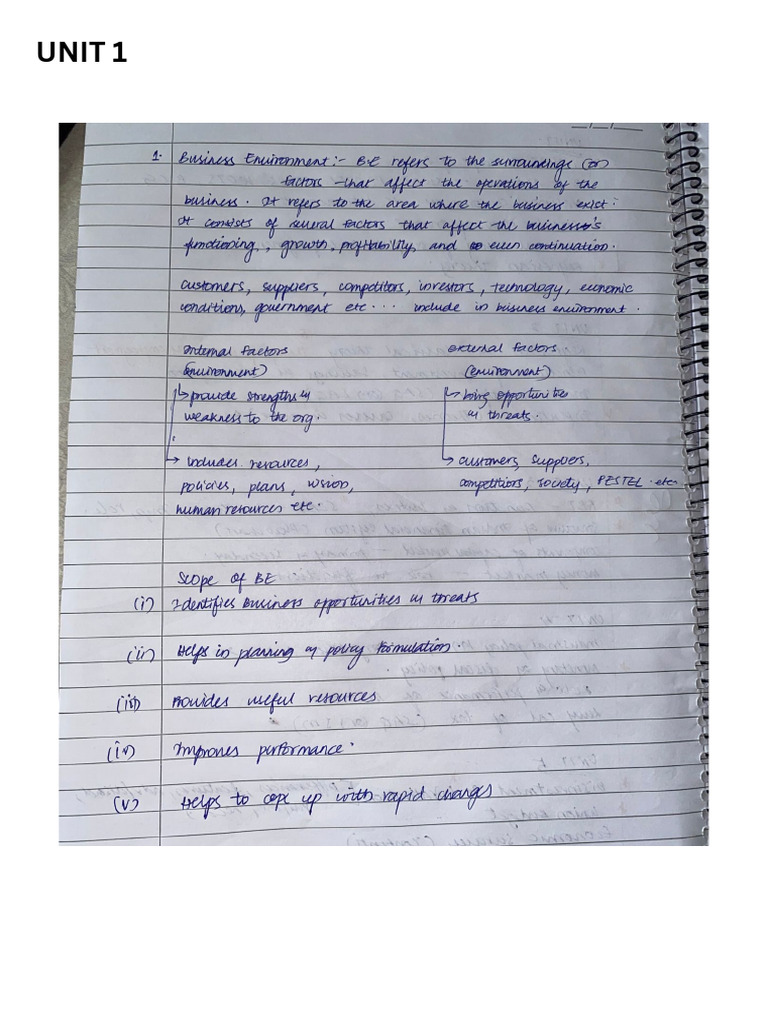 UNIT 1
1. Business Environment :- B.E refers to the surroundings (or)
factors that affect the operations of the
business. It refers to the area where the business exist.
It consists of several factors that affect the business's
functioning, growth, profitability, and even continuation.
customers, suppliers, competitors, investors, technology, economic
conditions, government etc... include in business environment.
Internal factors
(environment)
↳ provide strengths &
weakness to the org.
→ includes resources,
policies, plans, vision,
human resources etc.
external factors
(environment)
↳ bring opportunities
& threats.
→ customers, suppliers,
competitors, society, PESTEL etc
Scope of BE
(i) Identifies Business opportunities & threats
(ii) Helps in planning & policy formulation.
(iii) Provides useful resources
(iv) Improves performance.
(v) Helps to cope up with rapid changes